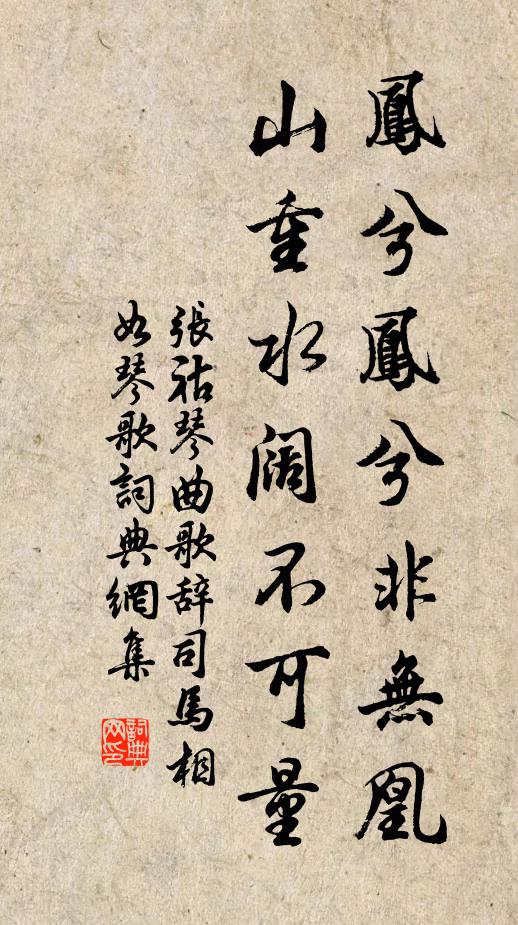 鳳兮鳳兮非無凰
山重水闊不可量
張祜琴曲歌辞司馬相
如琴歌詞典網集
詞典
网印